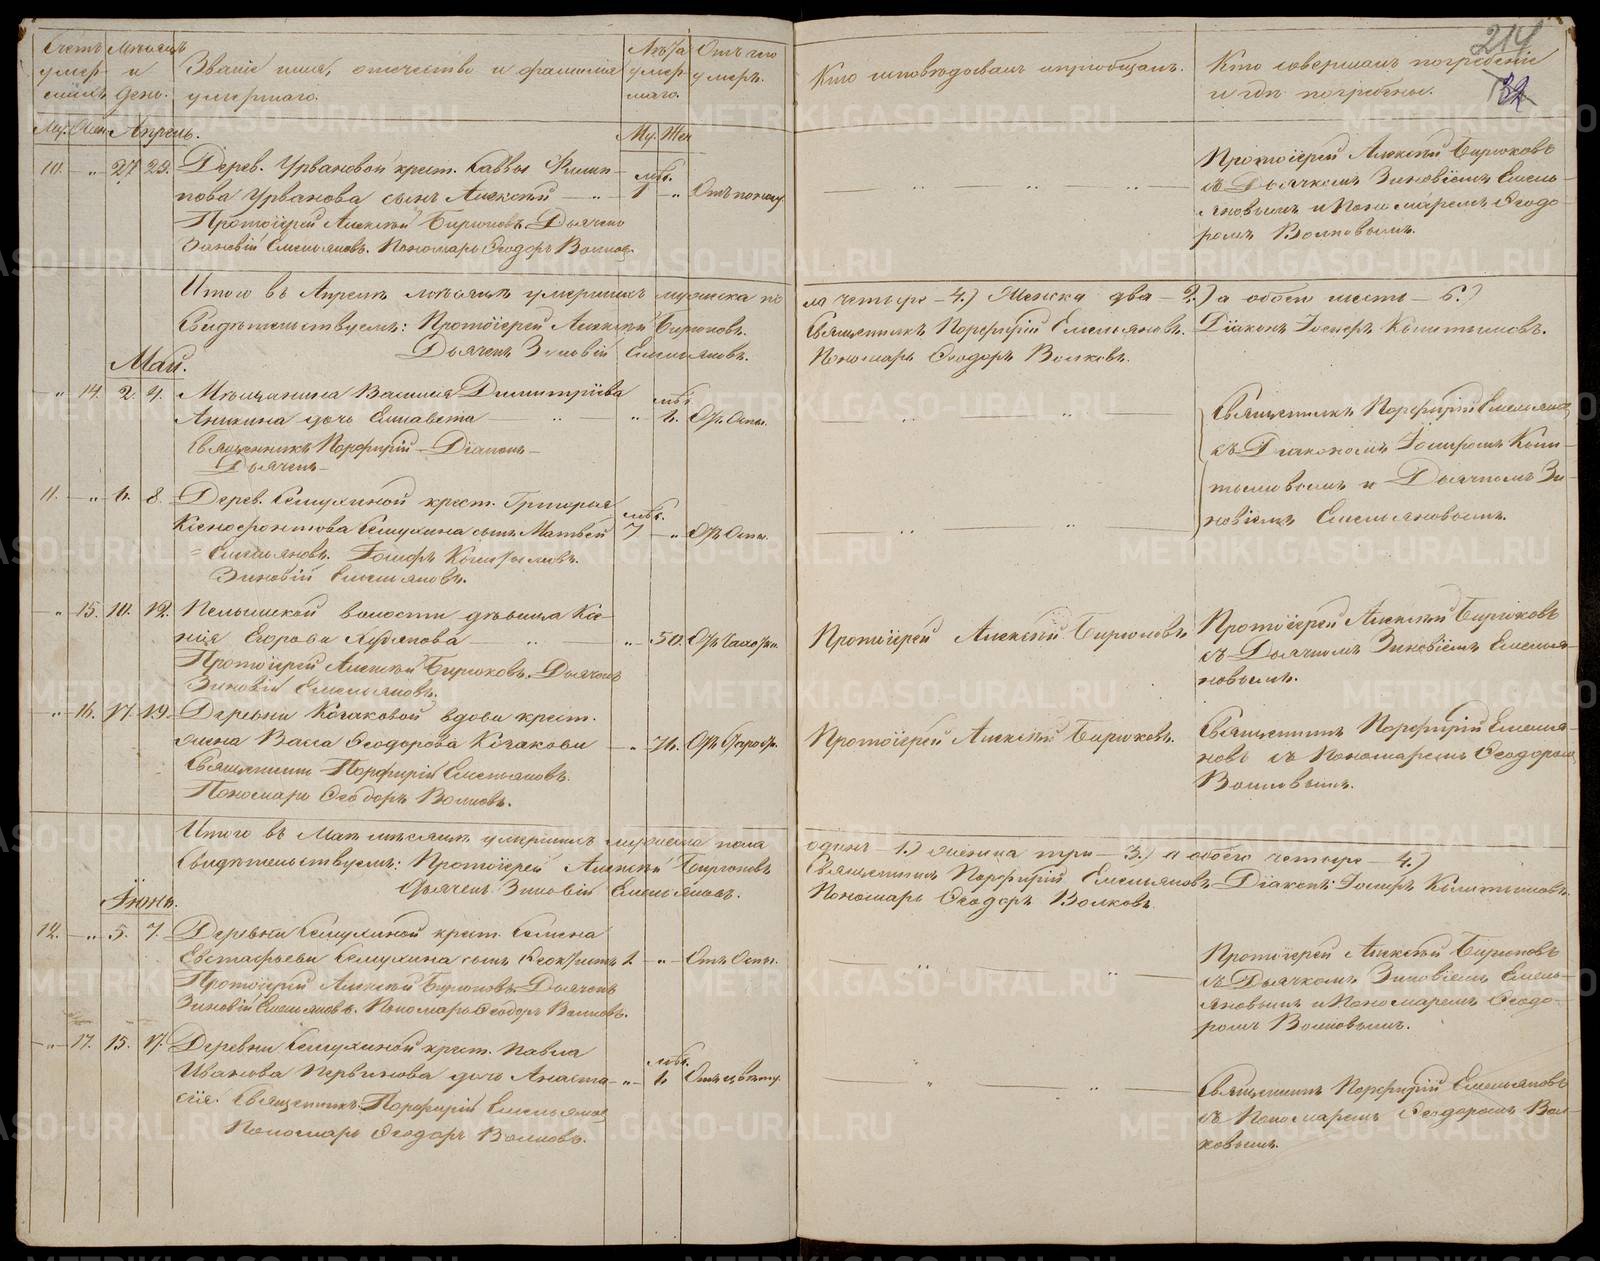 Счетъ умершихъ
Мѣсяцъ и день.
Званіе имя, отечество и фамилія
умершаго.
Лѣта умершаго.
Отъ чего умеръ.
Кто исповѣдовалъ и пріобщалъ.
Кто совершалъ погребеніе
и гдѣ погребены.
214
32
Му. Жен. Апрель. Му. Жен
10. — „ 27 29. Дерев. Урвановой крест. Саввы Филип-
пова Урванова сынъ Алексѣй — „ — мѣс. 1 „ Отъ поносу
Протоіерей Алексѣй Бирюковъ. Дьячекъ
Зиновій Емельяновъ. Пономарь Ѳеодоръ Волковъ.
Протоіерей Алексѣй Бирюковъ
съ Дьячкомъ Зиновіемъ Емель-
яновымъ и Пономаремъ Ѳеодо-
ромъ Волковымъ.
Итого въ Апрелѣ мѣсяцѣ умершихъ мужеска по
ла четыре — 4.) Женска два — 2.) а обоего шесть — 6.)
Свидѣтельствуемъ: Протоіерей Алексѣй Бирюковъ.
Священникъ Порфирій Емельяновъ. Діаконъ Іосифъ
Дьячекъ Зиновій Емельяновъ.
Пономарь Ѳеодоръ Волковъ.
Май.
„ 14. 2. 4. Мѣщанина Василія Димитріева
Аникина дочь Елисавета — „ мѣс. Отъ Оспы.
Священникъ Порфирій — Діаконъ —
Дьячекъ —
Священникъ Порфирій Емельяновъ
съ Діакономъ Іосифомъ
и Дьячкомъ Зи-
новіемъ Емельяновымъ.
11. — „ 6. 8. Дерев. крест. Григорья
Ксенофонтова сынъ Матвей мѣс. 7 — „ Отъ Оспы.
= Емельяновъ. Іосифъ
Зиновій Емельяновъ.
„ 15. 10. 12. волости дѣвица Ксе-
нія — „ „ — 50. Отъ Чахотки
Протоіерей Алексѣй Бирюковъ. Дьячекъ
Зиновій Емельяновъ.
Протоіерей Алексѣй Бирюковъ
Протоіерей Алексѣй Бирюковъ
съ Дьячкомъ Зиновіемъ Емелья-
новымъ.
„ 16. 17. 19. Деревни Кочаковой вдова крест.
жена Васса Ѳеодорова Кочакова — „ — 71. Отъ Старост.
Священникъ Порфирій Емельяновъ.
Пономарь Ѳеодоръ Волковъ.
Протоіерей Алексѣй Бирюковъ.
Священникъ Порфирій Емелья-
новъ съ Пономаремъ Ѳеодоромъ
Волковымъ.
Итого въ Маѣ мѣсяцѣ умершихъ мужеска пола
одинъ — 1.) женска три — 3.) а обоего четыре — 4.)
Свидѣтельствуемъ: Протоіерей Алексѣй Бирюковъ
Священникъ Порфирій Емельяновъ. Діаконъ Іосифъ
Дьячекъ Зиновій Емельяновъ.
Пономарь Ѳеодоръ Волковъ.
Іюнь.
12. — „ 5. 7. Деревни крест. Семена
Евстафьева сынъ Ѳеоктистъ 2 — „ — Отъ Оспы.
Протоіерей Алексѣй Бирюковъ. Дьячекъ
Зиновій Емельяновъ. Пономарь Ѳеодоръ Волковъ.
Протоіерей Алексѣй Бирюковъ
съ Дьячкомъ Зиновіемъ Емель-
яновымъ и Пономаремъ Ѳеодо-
ромъ Волковымъ.
„ 17. 15. 17. Деревни крест. Павла
Иванова Первинова дочь Анаста- „ мѣс.
сія. Священникъ Порфирій Емельяновъ
Пономарь Ѳеодоръ Волковъ.
Священникъ Порфирій Емельяновъ
съ Пономаремъ Ѳеодоромъ Вол-
ковымъ.
METRIKI.GASO-URAL.RU